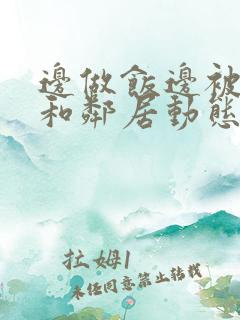 邊做飯邊被
和鄰居動態
拉姆1
未经同意禁止转载